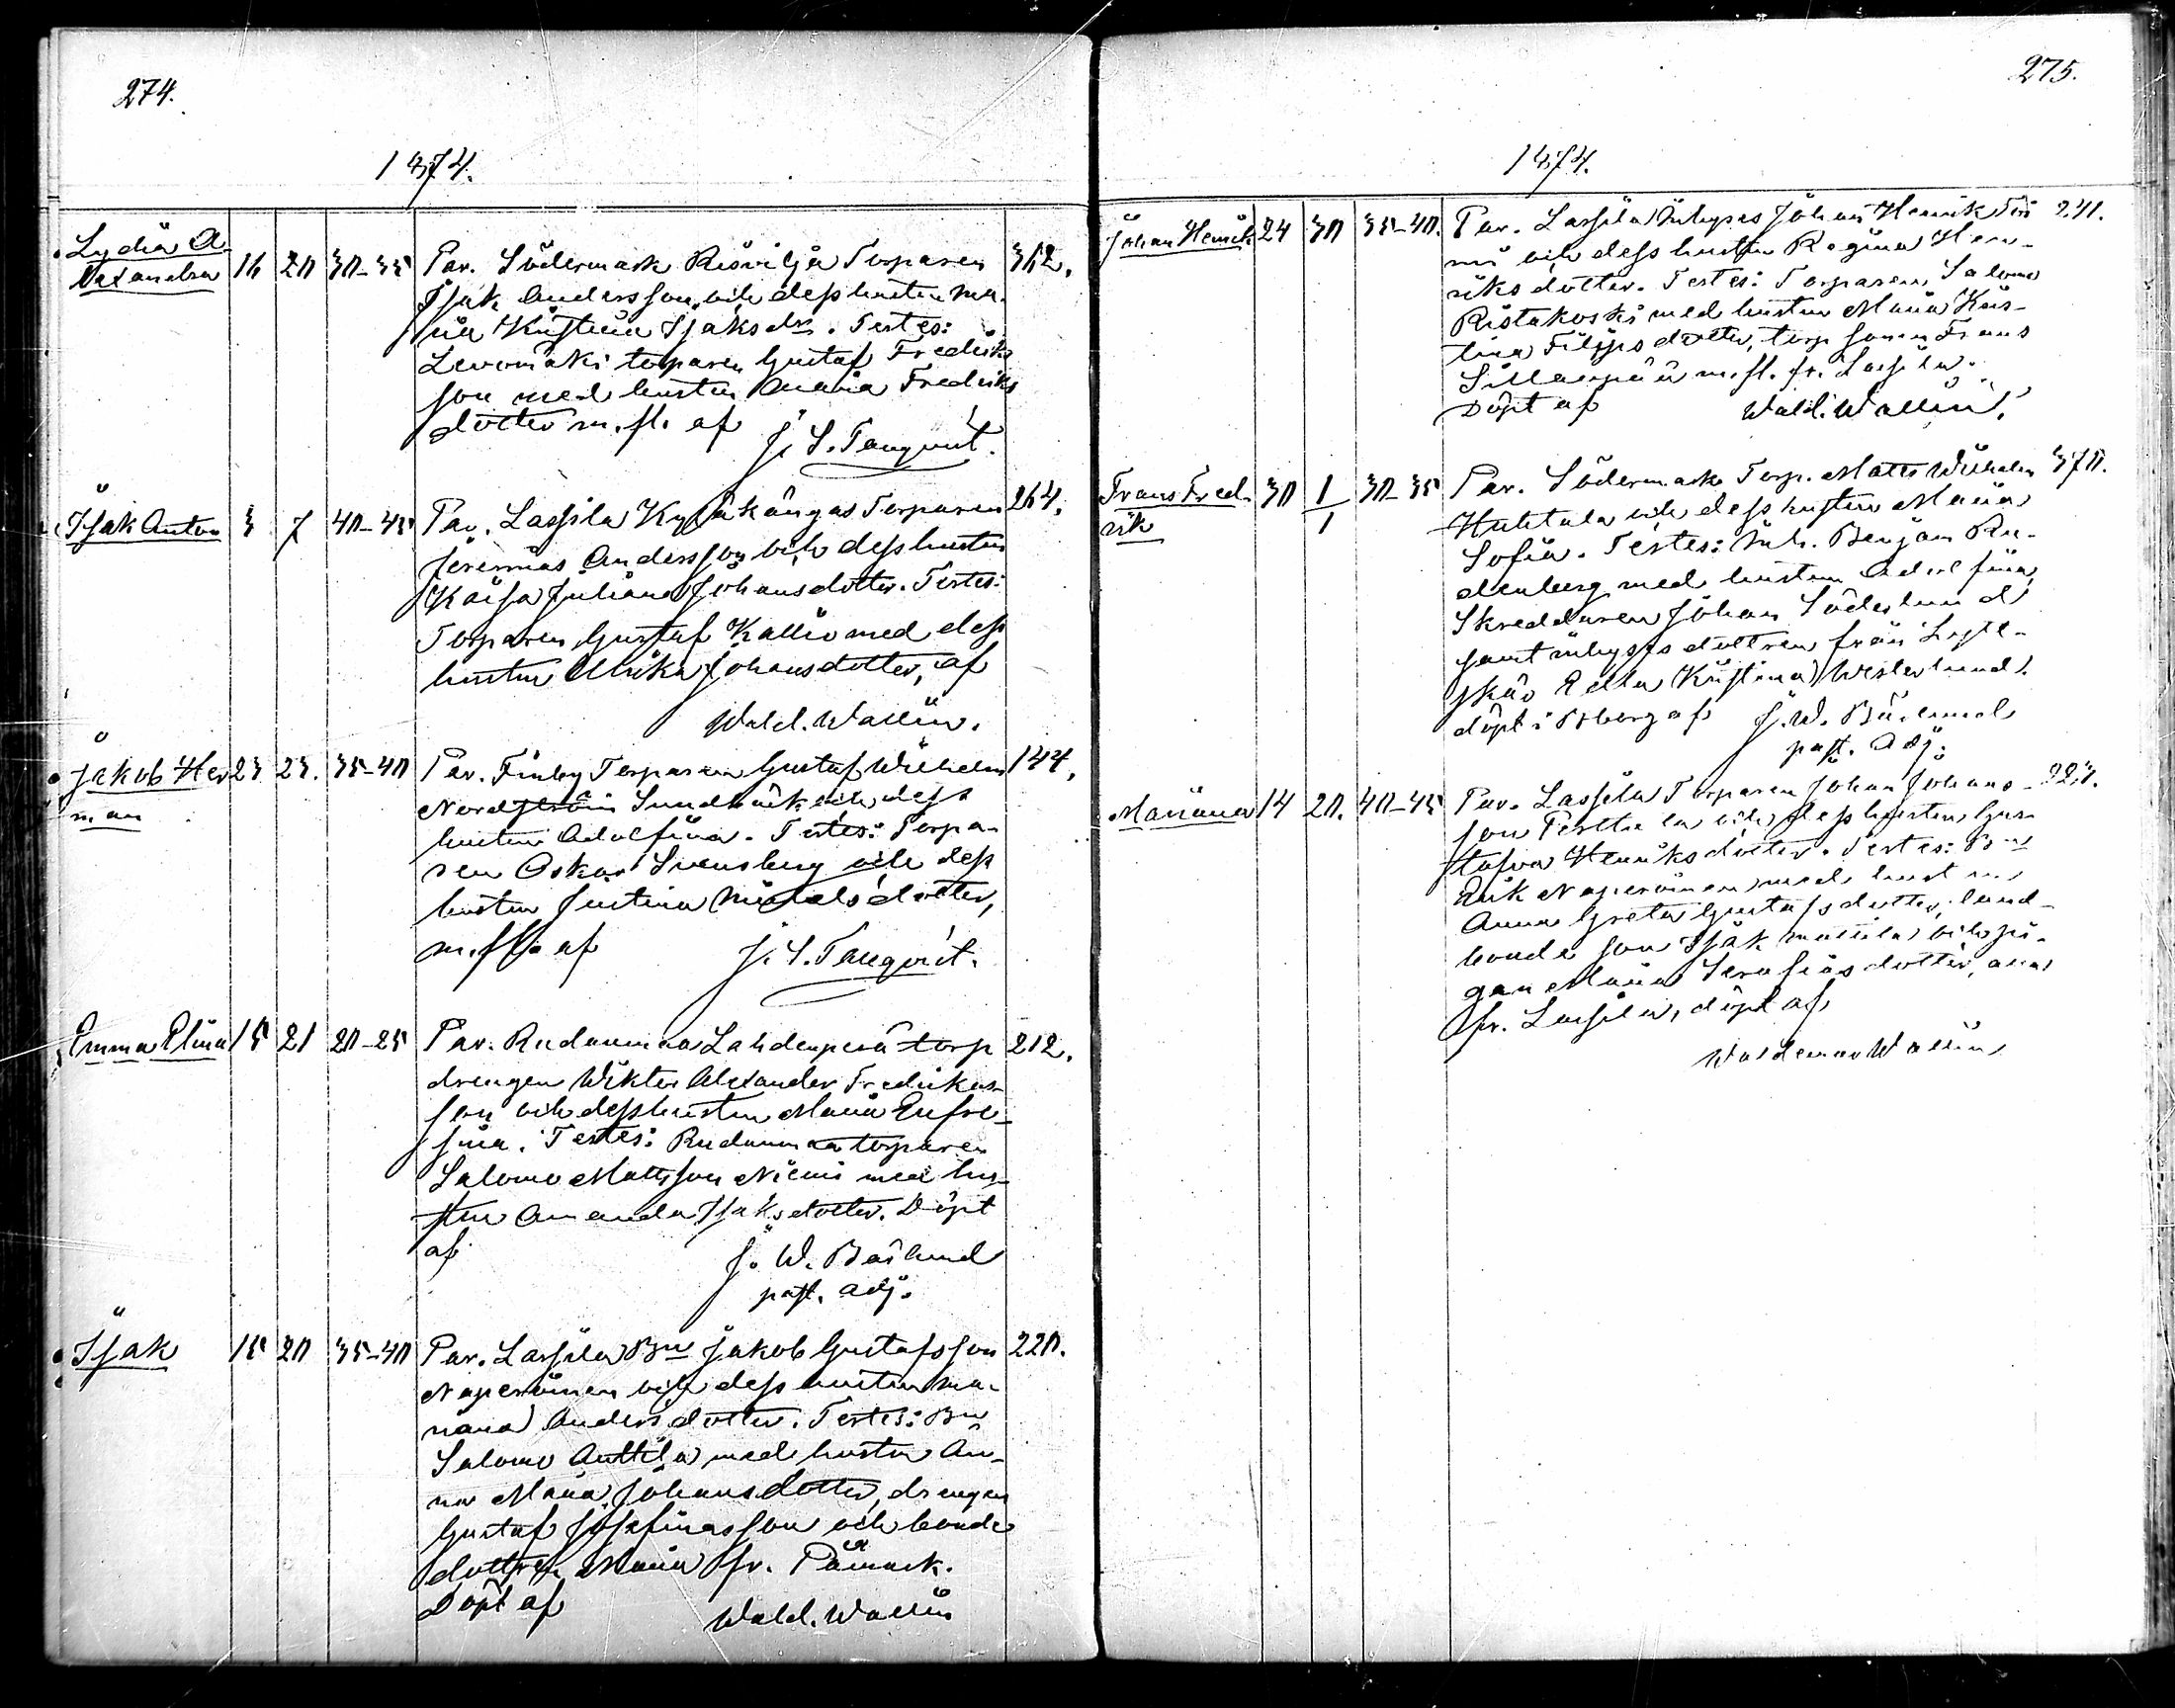 274.
1874.
Lydia A-
lexandra 16 20 30-35 Par. Södermark Risvilja Torparen 362.
Isak Andersson och dess hustru Ma-
ria Kristina Isaksdr. Testes:
Levomäki torparen Gustaf Fredriks
son med hustru Maria Fredriks
dotter m. fl. af
J. S. Tanqvist.
Isak Anton 3 7 40-45 Par. Lassila Kyläkangas Torparen 264.
Jeremias Andersson och dess hustru
Kaisa Juliana Johansdotter. Testes:
Torparen Gustaf Kallio med dess
hustru Ulrika Johansdotter, af
Wald. Wallin.
Jakob Her 23 23. 35-40 Par. Finby Torparen Gustaf Wilhelm 144.
man
Nordström Sundbäck och dess
hustru Adolfina. Testes: Torpa-
ren Oskar Svensberg och dess
hustru Justina Mickelsdotter,
m. fl. af J. S. Tanqvist.
Emma Elina 15 21 20-25 Par. Rudanmaa Lahdenperä torp 212.
drengen Wiktor Alexander Fredriks-
son och dess hustru Maria Eufro-
sina. Testes: Rudanmaa torparen
Salomo Mattsson Niemi med hus-
tru Amanda Isaksdotter. Döpt
af J. W. Båslund
past. adj.
Isak 15 20 35-40 Par. Lassila Bn Jakob Gustafsson 220.
Naperöinen och dess hustru Ma-
riana Andersdotter. Testes: Bn
Salomo Anttila med hustru An-
na Maria Johansdotter, drengen
Gustaf Josefinasson och bonde
dottren Maria fr. Påmark.
Döpt af Wald. Wallin
275.
1874.
Johan Henrik 24 30 35-40. Par. Lassila Inhyses Johan Henrik 241.
och dess hustru Regina Hen-
riksdotter. Testes: Torparen Salomo
Ristakoski med hustru Maria Kris-
tina Filipsdotter, torp sonen Frans
Sillanpää m. fl. fr. Lassila.
Döpt af Wald. Wallin.
Frans Fred- 30 1/1 30-35 Par. Södermark Torp. Matts Wilhelm 370.
rik
Huhtala och dess hustru Maria
Sofia. Testes: Inh. Benjam Ru-
denberg med hustru Adolfina,
Skreddaren Johan Söderlund
samt inhysesdottren från
skär Edla Kristina Westerlund.
döpt i af J. W. Båslund
past. Adj.
Mariana 14 20. 40-45 Par. Lassila Torparen Johan Johans-
son Perttula och dess hustru Gus-
tafva Henriksdotter. Testes: Bn
Erik Naperöinen med hustru
Anna Greta Gustafsdotter, land-
bonde son Isak Mattila och pi-
gan Maria Serafiasdotter, alla
fr. Lassila, döpt af
Waldemar Wallin